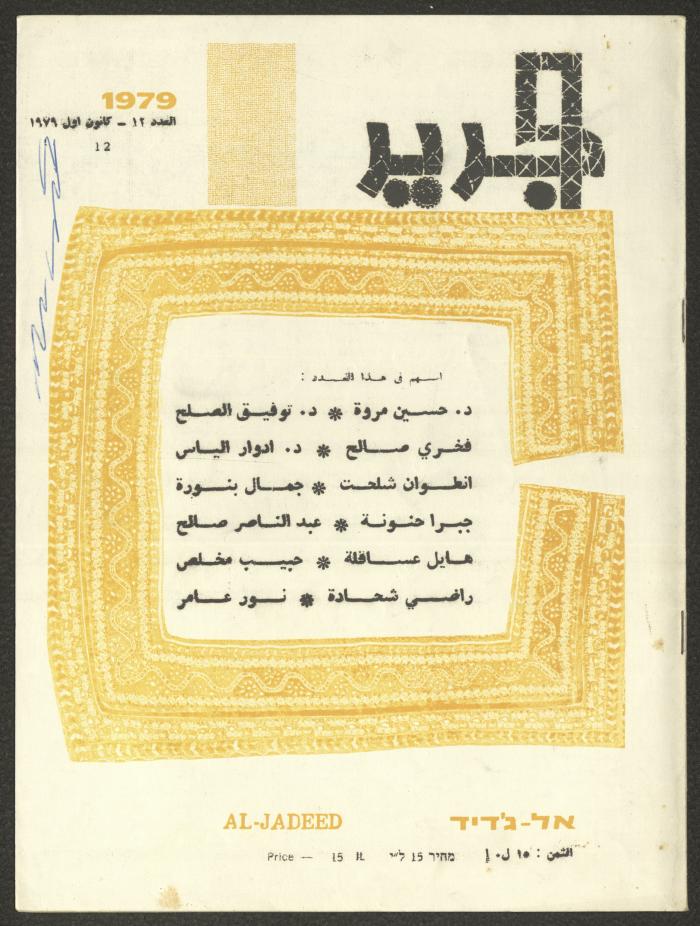 الجديد
1979
العدد ١٢ ــ كانون اول ١٩٧٩
12
اسهم في هذا العدد :
د. حسين مروة * د. توفيق الصلح
فخري صالح * د. ادوار الياس
انطوان شلحت * جمال بنورة
جبرا حنونة * عبد الناصر صالح
هايل عساقلة * حبيب مخلص
راضي شحادة * نور عامر
AL-JADEED אל-ג'דיד
Price — 15 IL מחיר 15 ל"י الثمن : ١٥ ل.إ